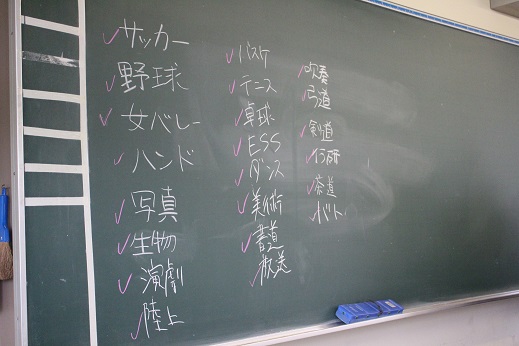 サッカー
野球
女バレー
ハンド
写真
生物
演劇
陸上
バスケ
テニス
卓球
ESS
ダンス
美術
書道
放送
吹奏
弓道
剣道
茶道
バト